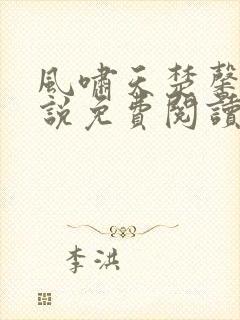 風嘯天楚馨
說免費閱讀
李洪